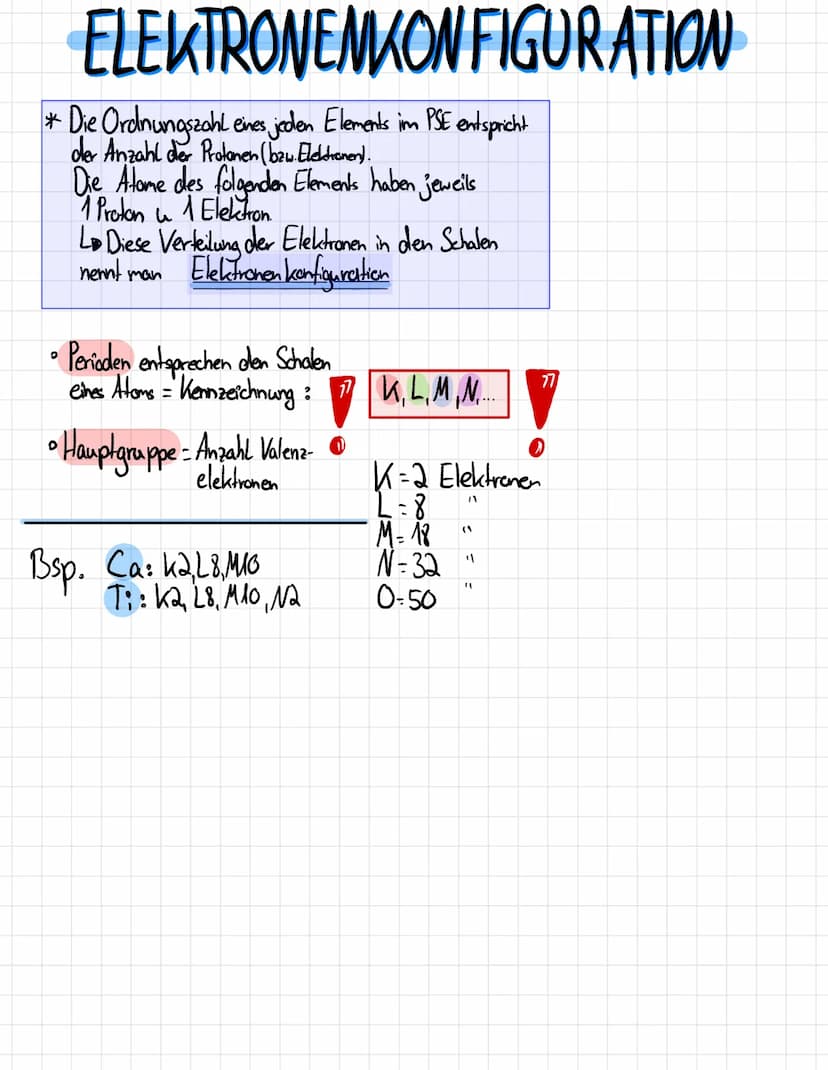 ELEKTRONENKONFIGURATION
* Die Ordnungszahl eines jeden Elements im PSE entspricht
der Anzahl der Protonen (bzw. Elektronen).
Die Atome des folgenden Elements haben jeweils
1 Proton u 1 Elektron.
↳ Diese Verteilung der Elektronen in den Schalen
nennt man Elektronenkonfiguration
° Perioden entsprechen den Schalen
eines Atoms = Kennzeichnung :
K, L, M, N, ...
° Hauptgruppe = Anzahl Valenz-
elektronen
K = 2 Elektronen
L = 8 "
M = 18 "
N = 32 "
O = 50 "
Bsp. Ca: K2, L8, M10
Ti: K2, L8, M10, N2